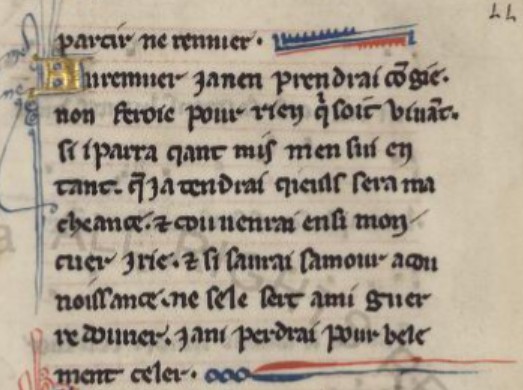 LL
partir ne remuier.
Auremuier Janen prendrai cōgie.
non feroie pour rien q̓ soit vivāt.
si i parra qant mis men sui en
tant. q̄ Ja tendrai qieuls sera ma
cheance. ⁊ couvenrai ensi mon
cuer Jrie. ⁊ si saurai samour acou
noissance. ne sele sert ami guer
redouner. Jani perdrai pour bele
ment celer.